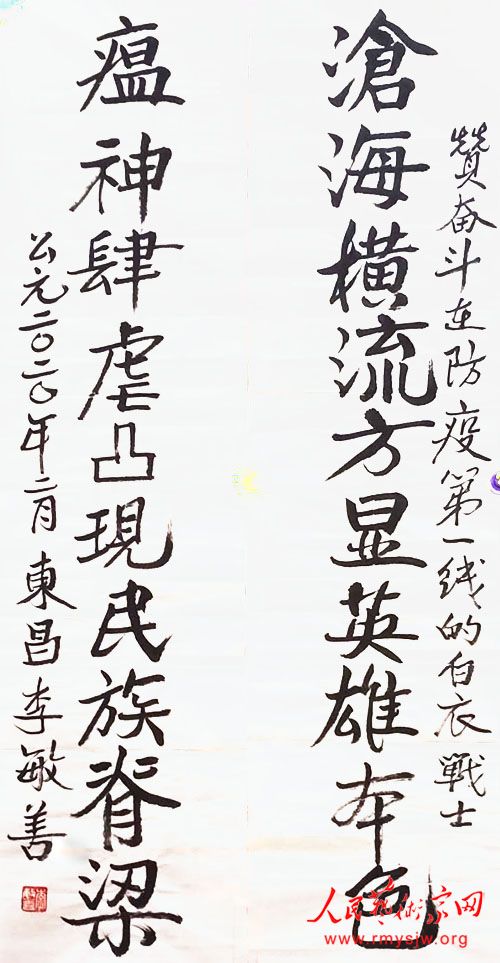 贊奋斗在防疫第一线的白衣戰士
滄海橫流方显英雄本色
瘟神肆虐凸現民族脊梁
公元二〇二〇年二月東昌李敏善
人民艺術家网
www.rmysjw.com